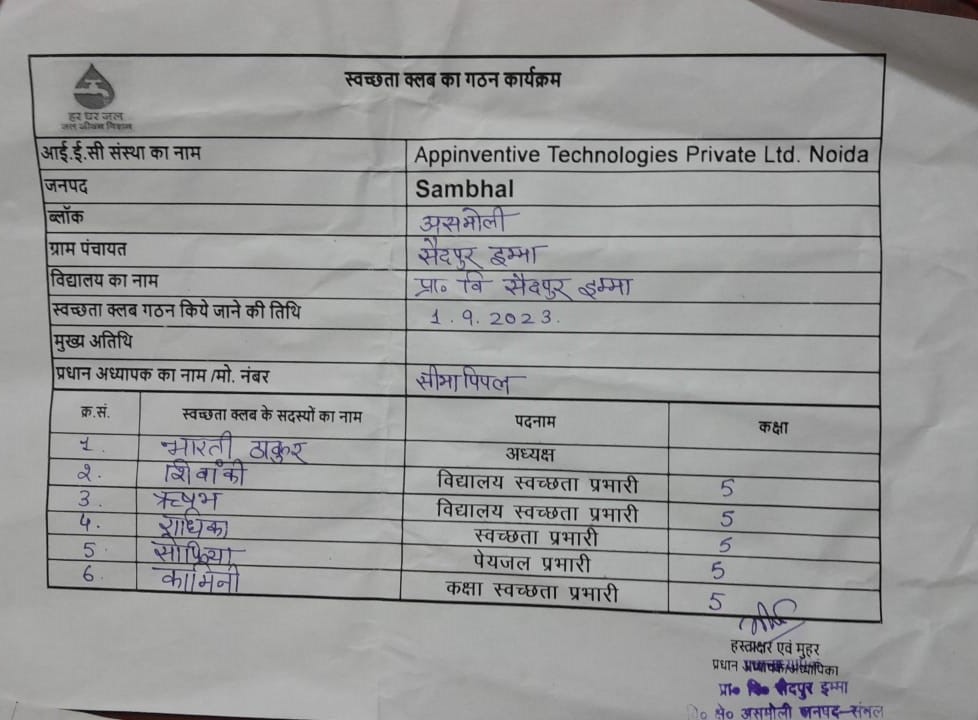 स्वच्छता क्लब का गठन कार्यक्रम
हर घर जल
जल जीवन मिशन
आई.ई.सी संस्था का नाम Appinventive Technologies Private Ltd. Noida
जनपद Sambhal
ब्लॉक असमोली
ग्राम पंचायत सैदपुर इम्मा
विद्यालय का नाम प्रा० वि सैदपुर इम्मा
स्वच्छता क्लब गठन किये जाने की तिथि 1.9.2023.
मुख्य अतिथि
प्रधान अध्यापक का नाम /मो. नंबर सीमा पिपल
क्र.सं. स्वच्छता क्लब के सदस्यों का नाम पदनाम कक्षा
1. भारती ठाकुर अध्यक्ष
2. शिवांकी विद्यालय स्वच्छता प्रभारी 5
3. ऋषभ विद्यालय स्वच्छता प्रभारी 5
4. राधिका स्वच्छता प्रभारी 5
5. सोफिया पेयजल प्रभारी 5
6. कामिनी कक्षा स्वच्छता प्रभारी 5
हस्ताक्षर एवं मुहर
प्रधान
प्रा० वि० सैदपुर इम्मा
असमोली जनपद-संभल